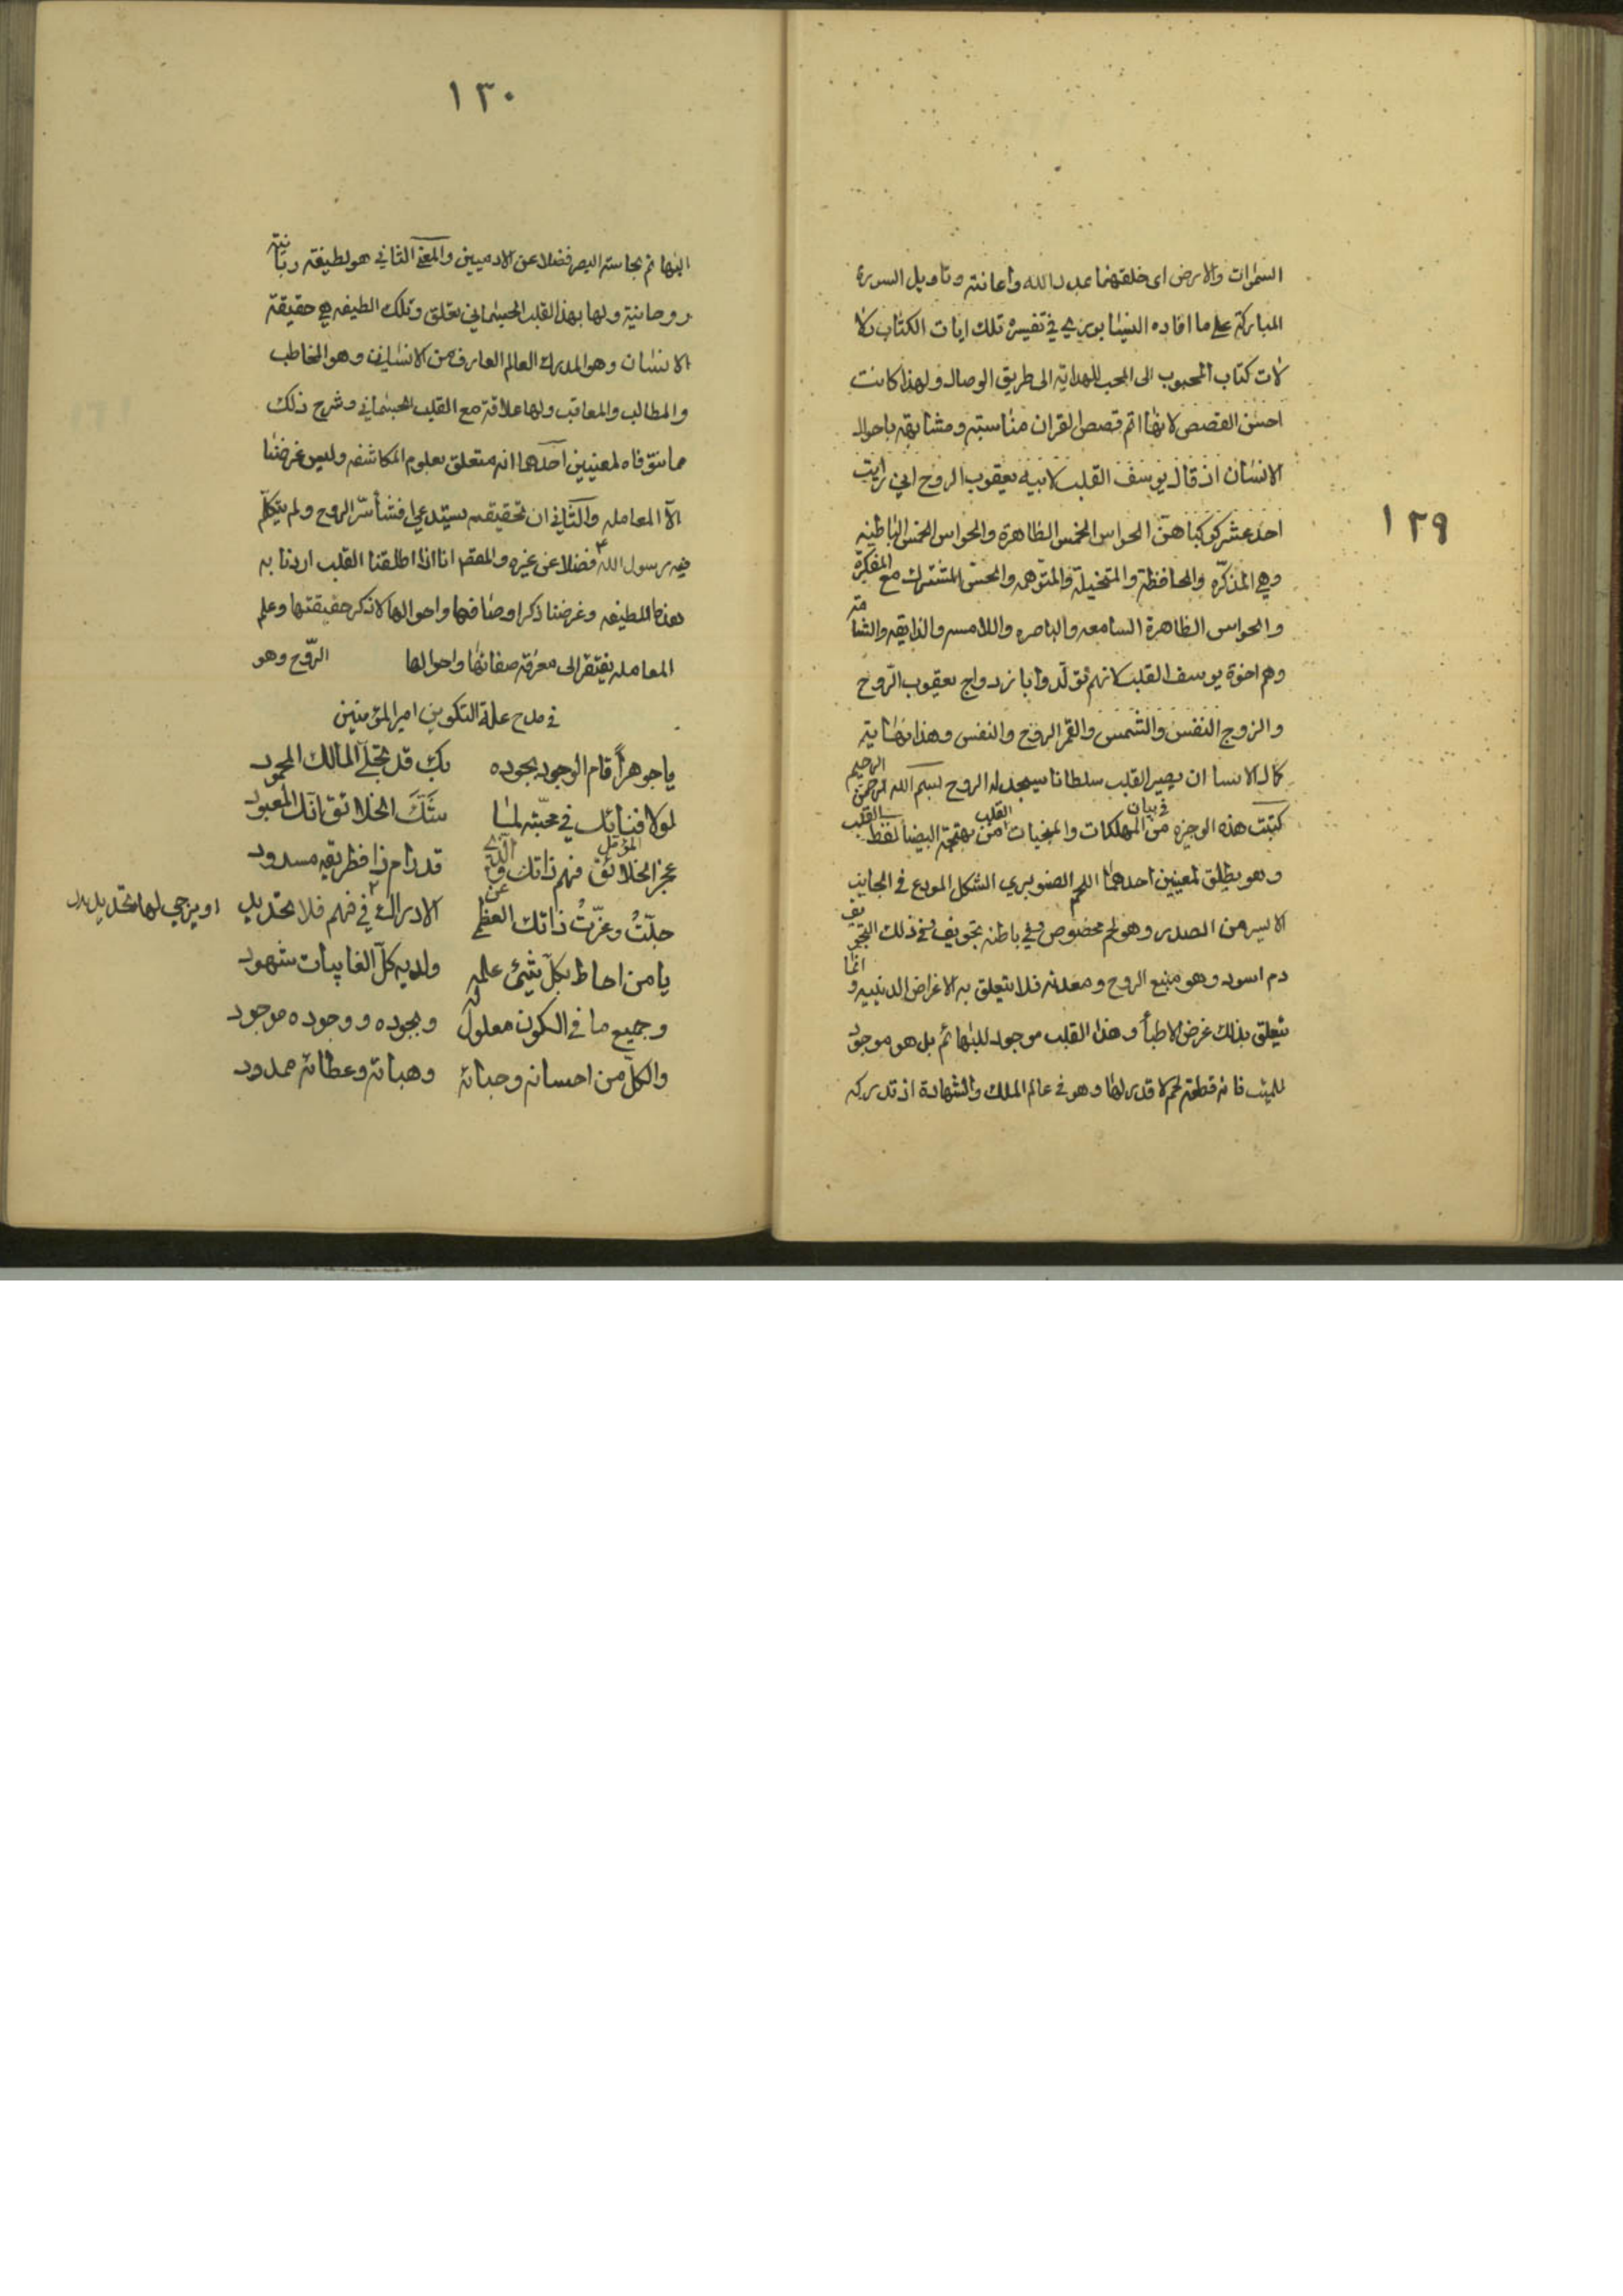 ١٢٩
السموات والارض اى خلقهنما بمدد الله واعانته وتاويل السورة
المباركة على ما افاده النيشابورى في تفسيره تلك ايات الكتاب دلا
لات كتاب المحبوب الى المحب للهداية الى طريق الوصال ولهذا كانت
احسن القصص لانها اتم قصص القران مناسبته ومشابهة باحوال
الانسان اذ قال يوسف القلب لابيه يعقوب الروح اني رايت
احد عشر كوكبا هن الحواس الخمس الظاهرة والحواس الخمس الباطنه
وهي المذكرة والحافظة والمتخيلة والمتوهمه والحس المشترك مع المفكرة
والحواس الظاهرة السامعه والباصره واللامسه والذايقه والشامة
وهم اخوة يوسف القلب لانهم تولدوا بازدواج يعقوب الروح
والزوج النفس والشمس والقمر الروح والنفس وهذا نهاية
كمال الانسان ان يصير القلب سلطانا يسجد له الروح بسم الله الرحمن الرحيم
كتبت هذه الوجيزه في بيان من المهلكات والمنجيات القلب من بهجة البيضا لفظ القلب
وهو يطلق لمعنيين احدهما اللحم الصنوبري الشكل المودع في الجانب
الايسر من الصدر وهو لحم مخصوص وفي باطنه تجويف وفي ذلك التجويف
دم اسود وهو منبع الروح ومعدنه فلا يتعلق به الاغراض الدينيه وانما
يتعلق بذلك غرض الاطبأ وهذا القلب موجود للبهائم بل هو موجود
للميت فانه قطعة لحم لا قدر لها وهو في عالم الملك والشهادة اذ تدركه
١٣٠
البهائم بحاسة البصر فضلا عن الادميين والمعنى الثاني هو لطيفة ربانية
روحانية ولها بهذا القلب الجسماني تعلق وتلك الطيفه هي حقيقة
الانسان وهو المدرك العالم العارف من الانسان وهو المخاطب
والمطالب والمعاقب ولها علاقة مع القلب الجسماني وشرح ذلك
مما نتوقاه لمعنيين احدهما انه متعلق بعلوم المكاشفه وليس غرضنا
الا المعامله والثاني ان تحقيقه يستدعي افشأ سر الروح ولم يتكلم
فيه رسول الله ص فضلا عن غيره والمقصد انا اذا اطلقنا القلب اردنا به
هذه اللطيفه وغرضنا ذكر اوصافها واحوالها لا ذكر حقيقتها وعلم
المعامله يفتقر الى معرفة صفاتها واحوالها الروح وهو
في مدح علة التكوين امير المؤمنين
يا جوهراً قام الوجود بجوده بك قد تجلى المالك المحمود
لولا فنائك في محبته لما شك الخلائق انك المعبود
عجز الخلائق المؤمل فهم ذاتك والذي قد رام ذا فطريقه مسدود
جلت وعزت ذاتك العظمى عن الادراك في فهم فلا تحديد او يرجى لها تحديد بدل
يا من احاط بكل شيئ علمه ولديه كل الغايبات شهود
وجميع ما في الكون معلول له وبجوده ووجوده موجود
والكل من احسانه وحبائه وهباته وعطائه ممدود